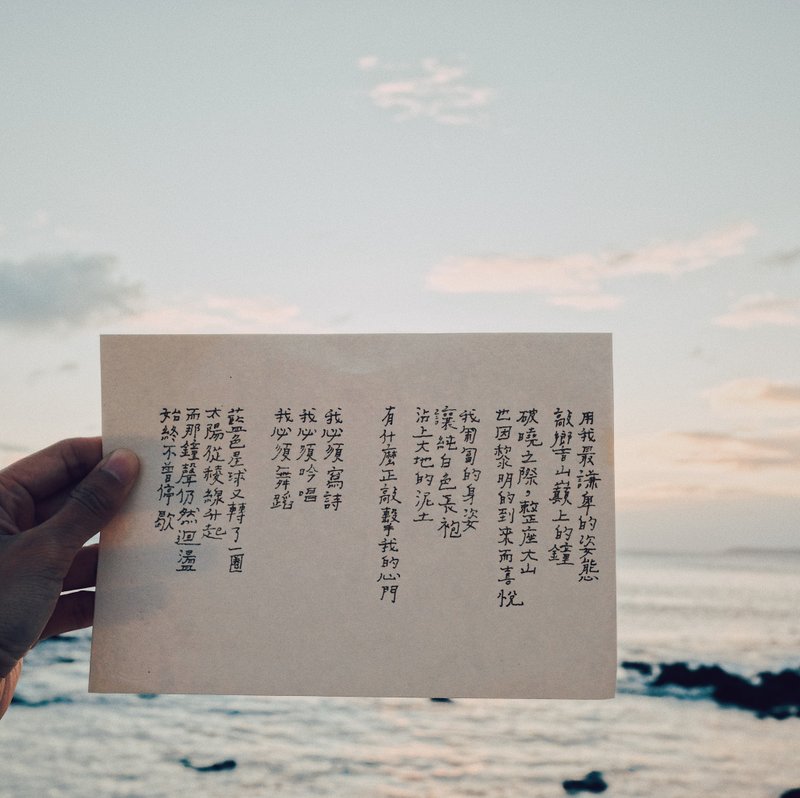 用我最謙卑的姿態
敲響音山巔上的鐘
破曉之際，整座大山
也因黎明的到來而喜悅
我匍匐的身姿
讓純白色長袍
沾上大地的泥土
有什麼正敲擊我的心門
我必須寫詩
我必須吟唱
我必須舞蹈
藍色星球又轉了一圈
太陽從稜線升起
而那鐘聲仍然迴盪
始終不曾停歇